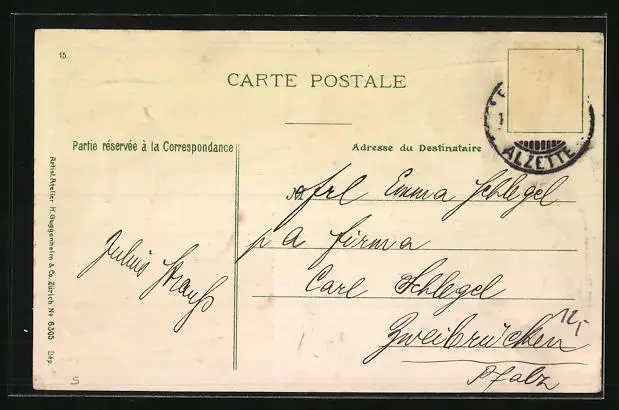 15.
CARTE POSTALE
Partie réservée à la Correspondance
Adresse du Destinataire
ALZETTE
M
Frl Emma Schlegel
p a Firma
Carl Schlegel
Zweibrücken
Pfalz
Julius Strauß
12,
Artist. Atelier H. Guggenheim & Co. Zürich No 6305 Dép.
S